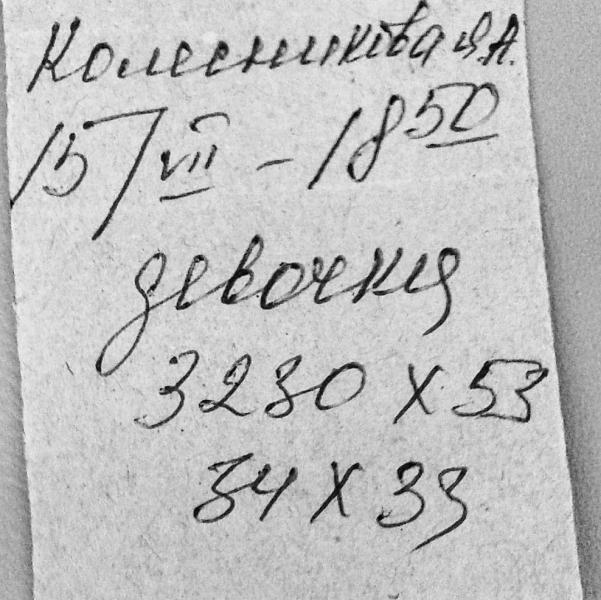 Колесникова Я.А.
15/VII - 18 50
девочка
3230 х 53
34 х 33